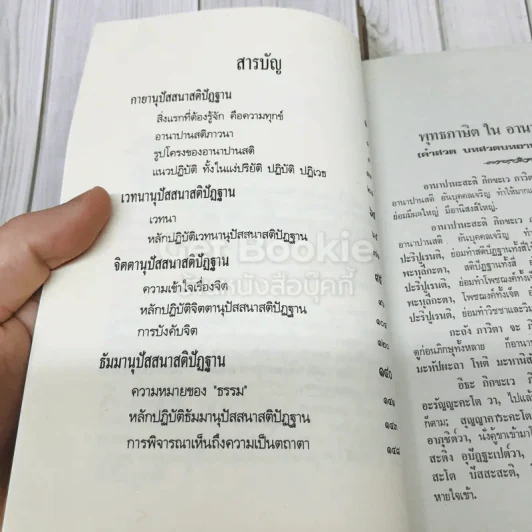 สารบัญ
กายานุปัสสนาสติปัฏฐาน
สิ่งแรกที่ต้องรู้จัก คือความทุกข์
อานาปานสติภาวนา
รูปโครงของอานาปานสติ
แนวปฏิบัติ ทั้งในแง่ปริยัติ ปฏิบัติ ปฏิเวธ
เวทนานุปัสสนาสติปัฏฐาน
เวทนา
หลักปฏิบัติเวทนานุปัสสนาสติปัฏฐาน
จิตตานุปัสสนาสติปัฏฐาน
ความเข้าใจเรื่องจิต
หลักปฏิบัติจิตตานุปัสสนาสติปัฏฐาน
การบังคับจิต ๑๒๐
ธัมมานุปัสสนาสติปัฏฐาน ๑๔๐
ความหมายของ "ธรรม" ๑๔๑
หลักปฏิบัติธัมมานุปัสสนาสติปัฏฐาน ๑๔๓
การพิจารณาเห็นถึงความเป็นตถาตา ๑๔๘
Get Bookie
ร้านหนังสือบุ๊คกี้
พุทธภาษิต ใน อานา
อานาปานะสะติ ภิกขะเว ภาวิตา
อานาปานสติ อันบุคคลเจริญ ทำให้มาก
ย่อมมีผลใหญ่ มีอานิสงส์ใหญ่.
อานาปานะสะติ ภิกขะเว
อานาปานสติ อันบุคคลเจริญ
ปะริปูเรนติ, ย่อมทำสติปัฏฐานทั้งสี่
พะหุลีกะตา, สติปัฏฐานทั้งสี่
ปะริปูเรนติ, ย่อมทำโพชฌงค์ทั้ง
พะหุลีกะตา, โพชฌงค์ทั้งเจ็ด
ปะริปูเรนติ, ย่อมทำวิชชาและวิมุ
กะถัง ภาวิตา จะ
ดูก่อนภิกษุทั้งหลาย ก็อานา
มะหัปผะลา โหติ มะหานิสั
อิธะ ภิกขะเว ภิก
อะรัญญะคะโต วา, ไปแล้ว
ก็ตาม; สุญญาคาระคะโต
อาภุชิตวา, นั่งคู้ขาเข้ามาโ
สะติง อุปัฏฐะเปต๎วา,
สะโต ปัสสะสะติ,
หายใจเข้า.